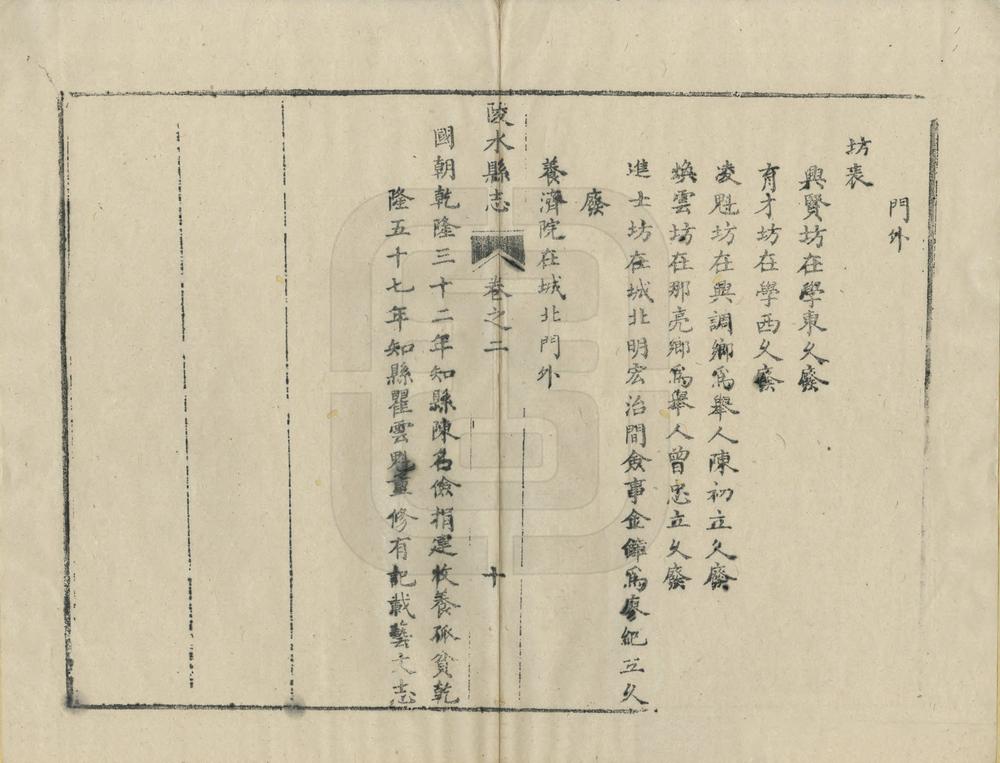 門外
坊表
興賢坊在學東久廢
育才坊在學西久廢
凌魁坊在興調鄉爲舉人陳初立久廢
煥雲坊在那亮鄉爲舉人曾忠立久廢
進士坊在城北明宏治間僉事金鏞爲廖紀立久
廢
養濟院在城北門外
陵水縣志 卷之二 十
國朝乾隆三十二年知縣陳名儉捐建收養孤貧乾
隆五十七年知縣瞿雲魁重修有記載藝文志